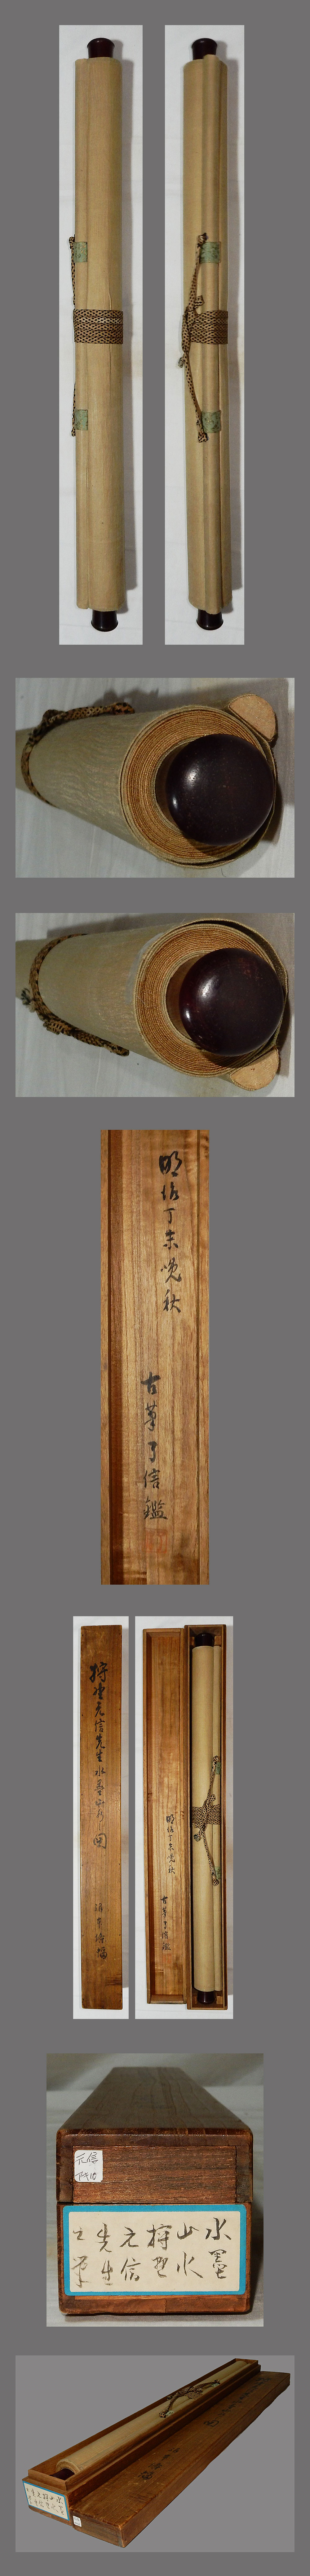 明治丁未晩秋
古筆了信鑑
狩野元信先生水墨山水図
明治丁未晩秋
古筆了信鑑
元信
水墨
山水
狩野
元信
先生
之筆